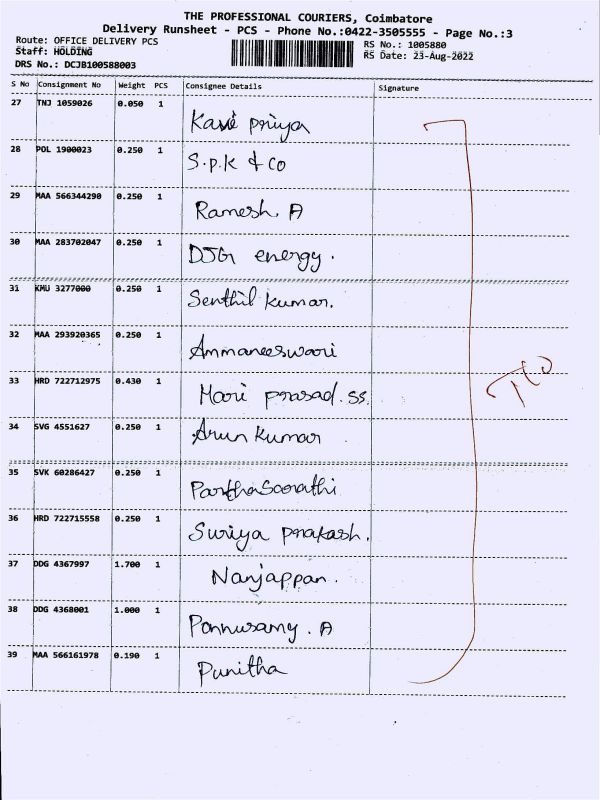 THE PROFESSIONAL COURIERS, Coimbatore
Delivery Runsheet - PCS - Phone No.:0422-3505555 - Page No.:3
Route: OFFICE DELIVERY PCS
RS No.: 1005880
Staff: HOLDING
RS Date: 23-Aug-2022
DRS No.: DCJB100588003
S No Consignment No Weight PCS Consignee Details Signature
27 TNJ 1059026 0.050 1 Kavi priya
28 POL 1900023 0.250 1 S.p.k & Co
29 MAA 566344290 0.250 1 Ramesh. A
30 MAA 283702047 0.250 1 DJG energy.
31 KMU 3277000 0.250 1 Senthil kumar.
32 MAA 293920365 0.250 1 Ammaneeswari
33 HRD 722712975 0.430 1 Hari prasad. ss.
34 SVG 4551627 0.250 1 Arun kumar
35 SVK 60286427 0.250 1 Parthasarathi
36 HRD 722715558 0.250 1 Suriya prakash.
37 DDG 4367997 1.700 1 Nanjappan.
38 DDG 4368001 1.000 1 Ponnusamy. A
39 MAA 566161978 0.190 1 Punitha